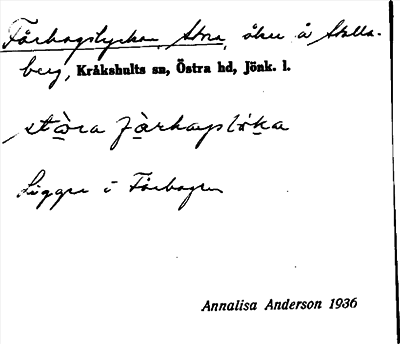 Fårhagslyckan, Stora, åker å Skälla-
berg, Kråkshults sn, Östra hd, Jönk. l.
stòra fàrhagslika
Ligger i Fårhagen
Annalisa Anderson 1936